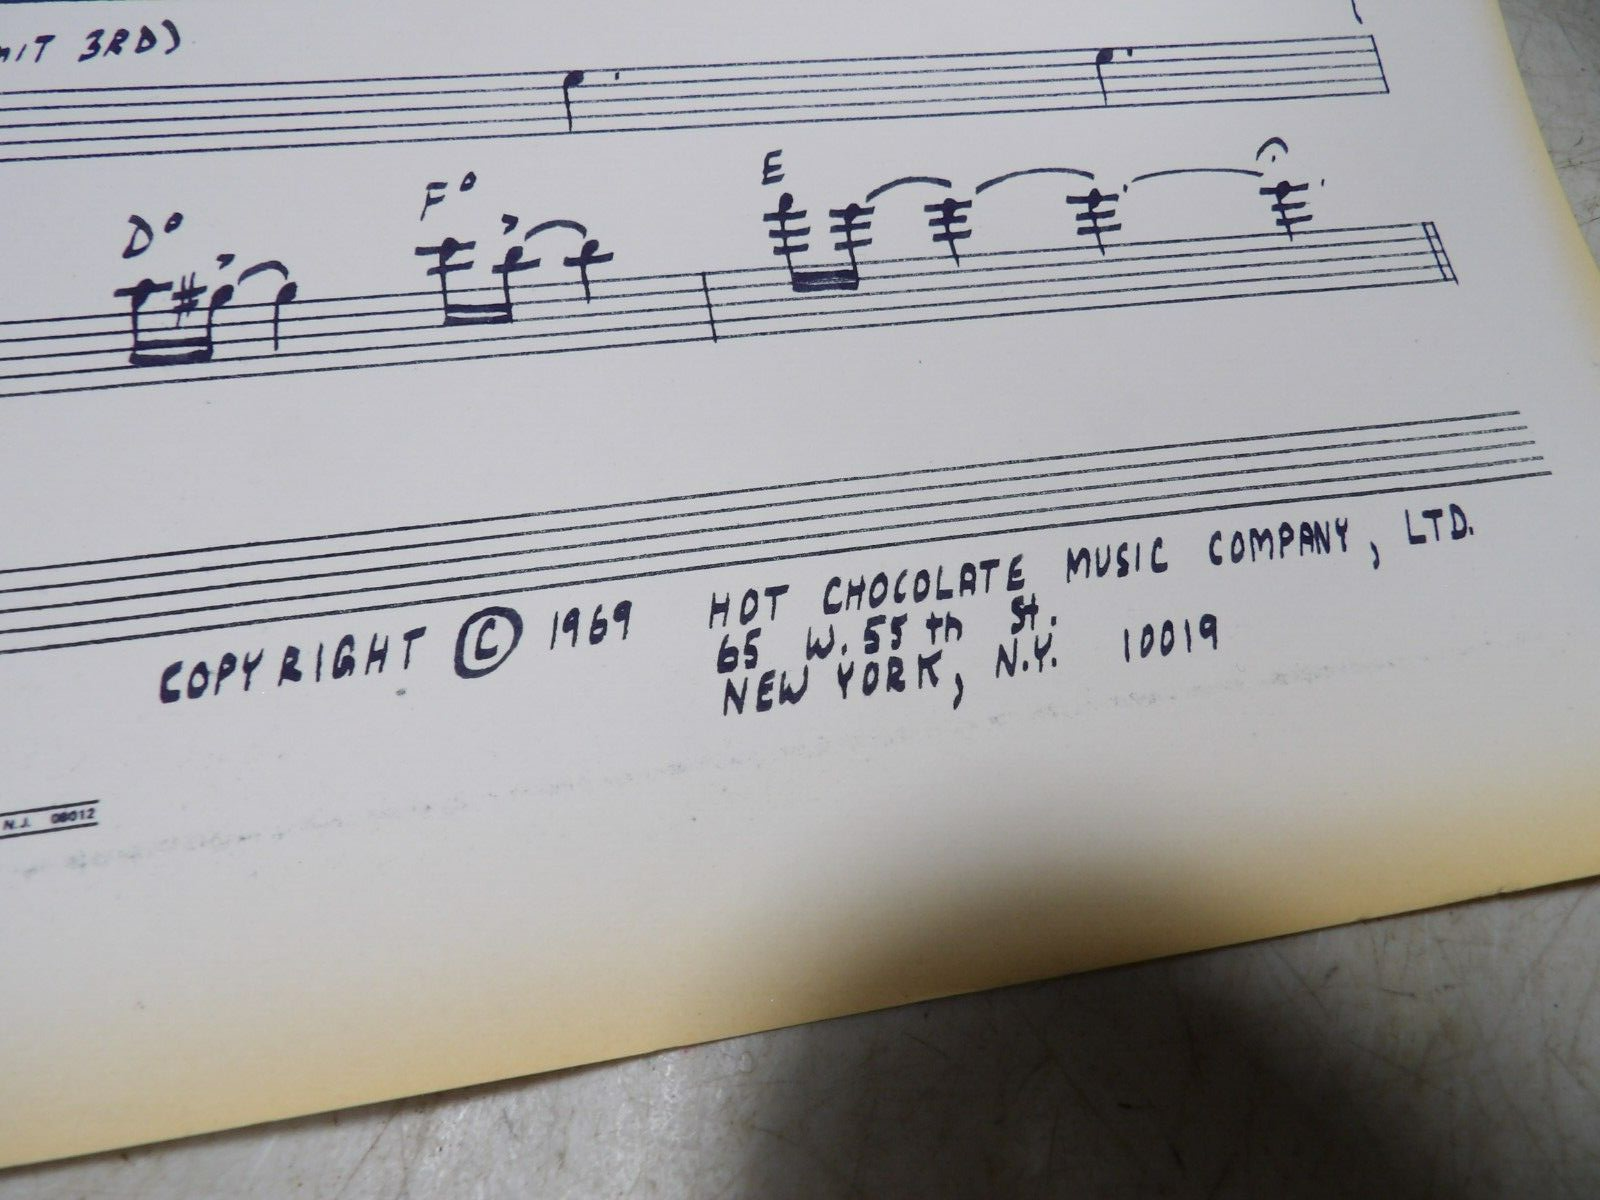 3RD)
D° F° E
COPYRIGHT © 1969 HOT CHOCOLATE MUSIC COMPANY, LTD.
65 W. 55th St.
NEW YORK, N.Y. 10019
N.J. 08012